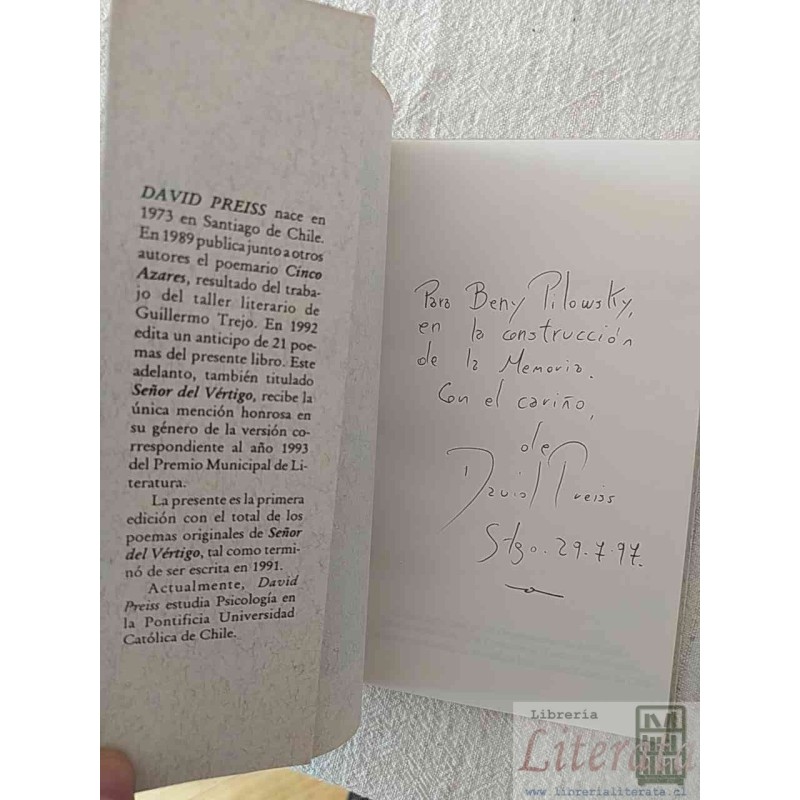 DAVID PREISS nace en
1973 en Santiago de Chile.
En 1989 publica junto a otros
autores el poemario Cinco
Azares, resultado del traba-
jo del taller literario de
Guillermo Trejo. En 1992
edita un anticipo de 21 poe-
mas del presente libro. Este
adelanto, también titulado
Señor del Vértigo, recibe la
única mención honrosa en
su género de la versión co-
rrespondiente al año 1993
del Premio Municipal de Li-
teratura.
La presente es la primera
edición con el total de los
poemas originales de Señor
del Vértigo, tal como termi-
nó de ser escrita en 1991.
Actualmente, David
Preiss estudia Psicología en
la Pontificia Universidad
Católica de Chile.
Para Beny Pilowsky,
en la construcción
de la Memoria.
Con el cariño,
de
David Preiss
Stgo. 29.7.97.
Libreria
Literata
www.librerialiterata.cl